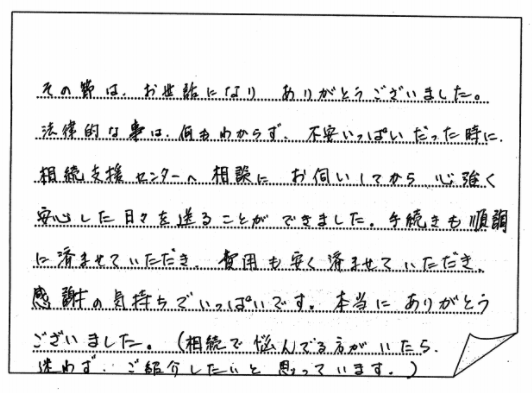 その節は、お世話になり ありがとうございました。
法律的な事は、何もわからず、不安いっぱいだった時に、
相続支援センターへ 相談に お伺いしてから、心強く
安心した日々を送ることができました。手続きも順調
に済ませていただき、費用も安く済ませていただき、
感謝の気持ちでいっぱいです。本当に ありがとう
ございました。(相続で悩んでる方がいたら、
迷わず、ご紹介したいと思っています。)